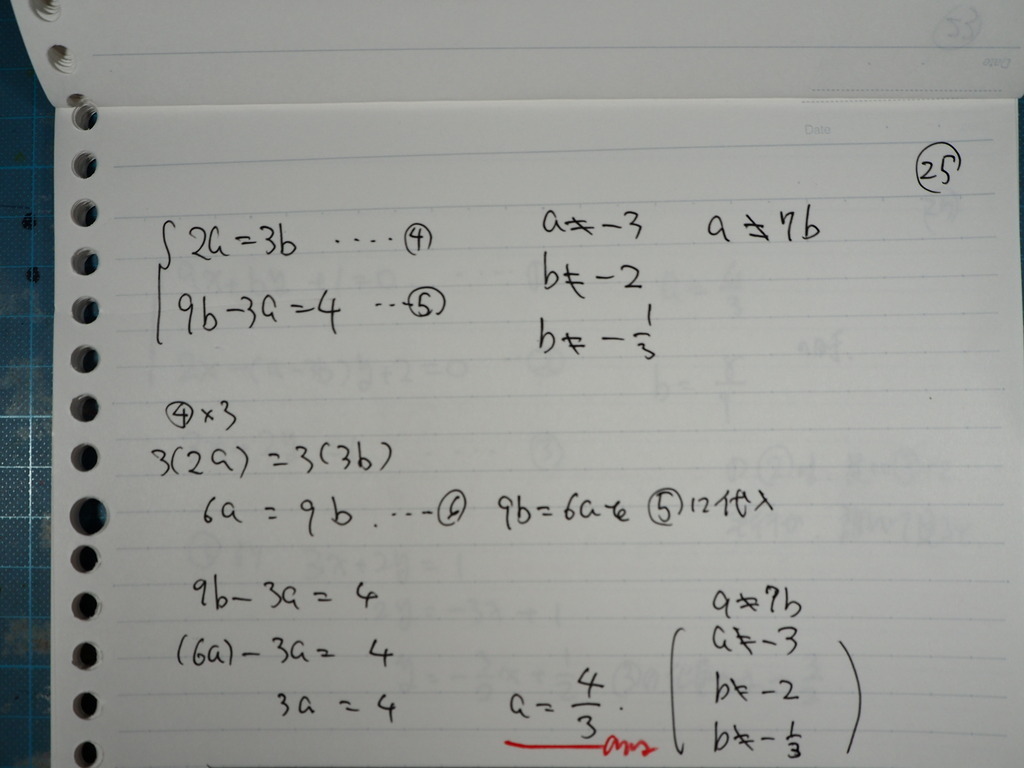 Date
㉕
2a = 3b ‥‥④
9b - 3a = 4 ‥‥⑤
a ≠ -3
a ≠ 7b
b ≠ -2
b ≠ -1/3
④×3
3(2a) = 3(3b)
6a = 9b ‥‥⑥ 9b = 6aを ⑤に代入
9b - 3a = 4
(6a) - 3a = 4
3a = 4
a = 4/3 .
ans
a ≠ 7b
a ≠ -3
b ≠ -2
b ≠ -1/3